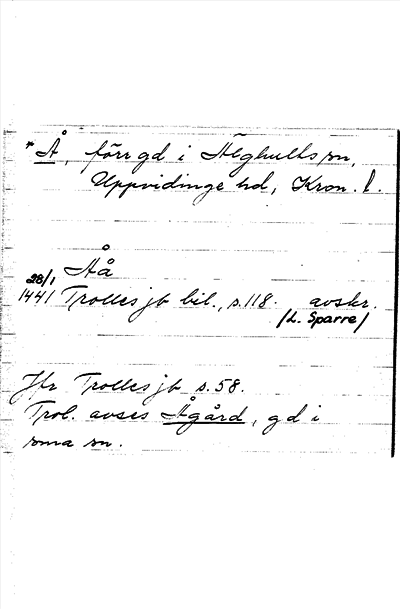 * Å, förr gd i Älghults sn,
Uppvidinge hd, Kron. l.
Aå
28/1
1441 Trolles jb bil., s. 118. avskr.
/L. Sparre/
Jfr Trolles jb s. 58.
Trol. avses Ågård, gd i
sma sn.